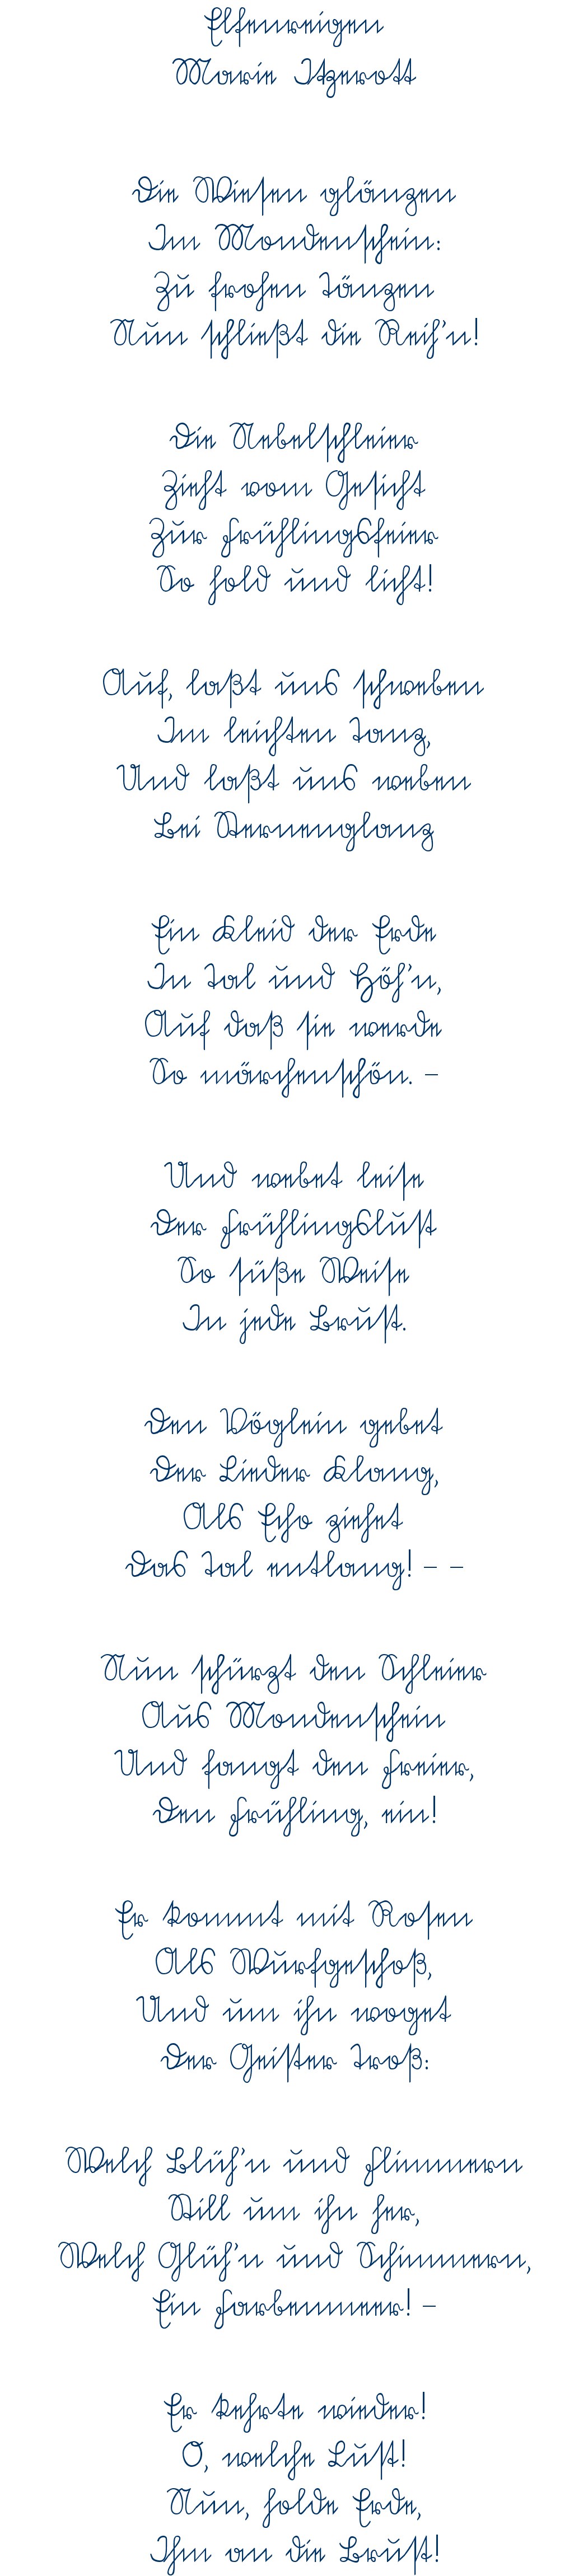 Elfenreigen
Marie Itzerott
Die Wiesen glänzen
Im Mondenschein:
Zu frohen Tänzen
Nun schließt die Reih'n!
Die Nebelschleier
Zieht vom Gesicht
Zur Frühlingsfeier
So hold und licht!
Auf, laßt uns schweben
Im leichten Tanz,
Und laßt uns weben
Bei Sternenglanz
Ein Kleid der Erde
In Tal und Höh'n,
Auf daß sie werde
So märchenschön. –
Und webet leise
Der Frühlingslust
So süße Weise
In jede Brust.
Den Vöglein gebet
Der Lieder Klang,
Als Echo ziehet
Das Tal entlang! – –
Nun schürzt den Schleier
Aus Mondenschein
Und fangt den Freier,
Den Frühling, ein!
Er kommt mit Rosen
Als Wurfgeschoß,
Und um ihn woget
Der Geister Troß:
Welch Blüh'n und Flimmern
Still um ihn her,
Welch Glüh'n und Schimmern,
Ein Farbenmeer! –
Er kehrte wieder!
O, welche Lust!
Nun, holde Erde,
Ihm an die Brust!